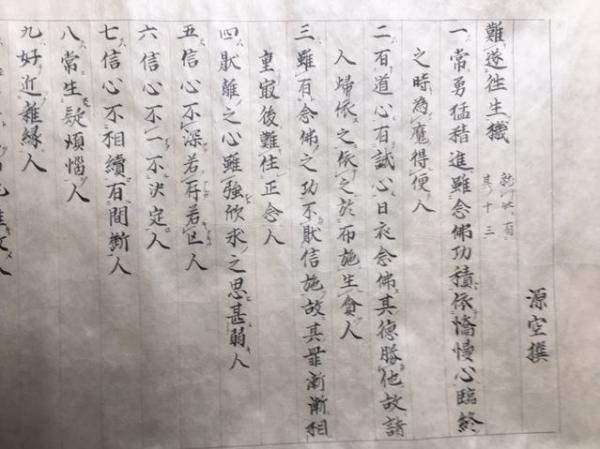 源空撰
難遂徃生機 就此有其十三
一常勇猛精進雖念佛功積依憍慢心臨終
之時為魔得便人
二有道心有誠心日夜念佛其德勝他故諸
人歸依之依之於布施生貪人
三雖有念佛之功不猒信施故其罪漸漸相
重寂後難住正念人
四猒離之心雖強欣求之思甚弱人
五信心不深若存若亡人
六信心不一不決定人
七信心不相續有間斷人
八常生疑煩惱人
九好近雜縁人